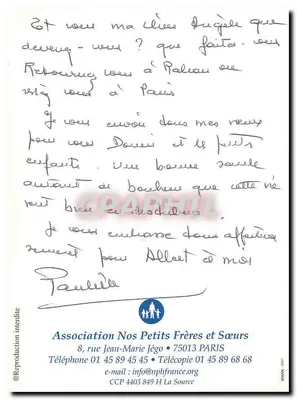 Et vous ma chère Angèle que
devenez-vous? que faites-vous
Retournez vous à Rabian ou
restez vous à Paris
Je vous envoie tous mes vœux
pour vous Daniel et le petit
enfants. une bonne santé
autant de bonheur que cette vie
veut bien
Je vous embrasse bien affectueu
sement pour Albert à moi
Paulette
Association Nos Petits Frères et Sœurs
8, rue Jean-Marie Jégo • 75013 PARIS
Téléphone 01 45 89 45 45 • Télécopie 01 45 89 68 68
e-mail : info@nphfrance.org
CCP 4403 849 H La Source
®Reproduction interdite